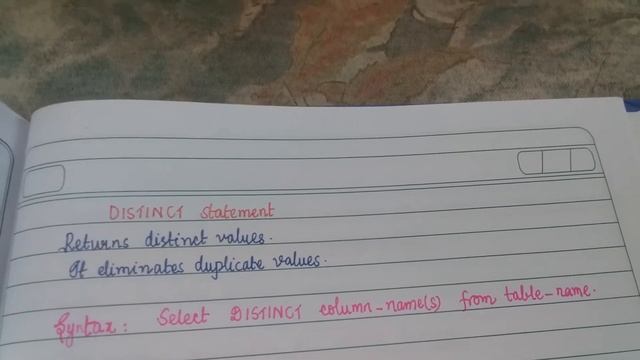 DISTINCT statement
Returns distinct values.
It eliminates duplicate values.
Syntax: Select DISTINCT column-name(s) from table-name.